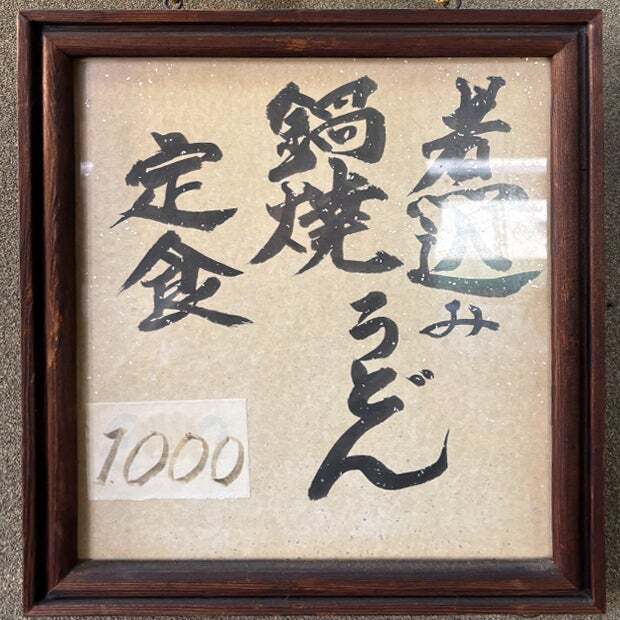 煮込み
鍋焼うどん
定食
1000